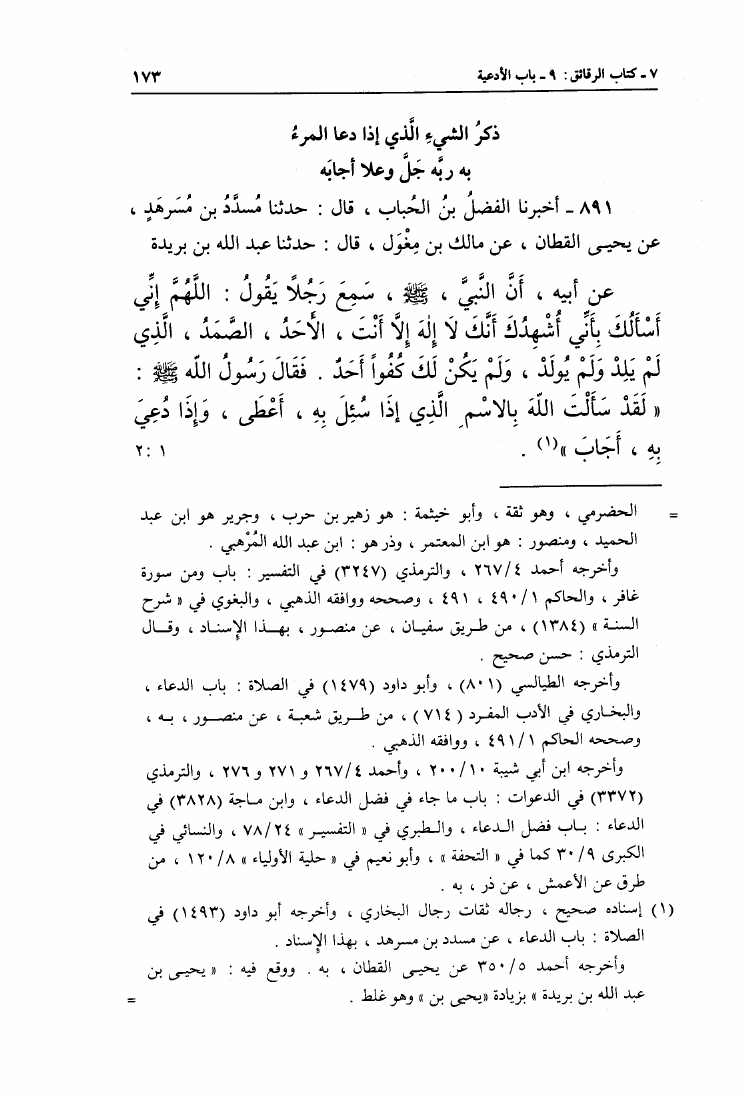 ٧ - كتاب الرقائق : ٩ - باب الأدعية ١٧٣
ذكرُ الشيءِ الَّذي إذا دعا المرءُ
به ربَّه جَلَّ وعلا أجابَه
٨٩١ - أخبرنا الفضلُ بنُ الحُباب ، قال : حدثنا مُسدَّدُ بن مُسَرهَدٍ ،
عن يحيى القطان ، عن مالك بن مِغْوَل ، قال : حدثنا عبد الله بن بريدة
عن أبيه ، أَنَّ النَّبِيَّ ، ﷺ ، سَمِعَ رَجُلًا يَقُولُ : اللَّهُمَّ إِنِّي
أَسْأَلُكَ بِأَنِّي أُشْهِدُكَ أَنَّكَ لَا إِلٰهَ إِلَّا أَنْتَ ، الأَحَدُ ، الصَّمَدُ ، الَّذِي
لَمْ يَلِدْ وَلَمْ يُولَدْ ، وَلَمْ يَكُنْ لَكَ كُفُواً أَحَدٌ . فَقَالَ رَسُولُ اللَّه ﷺ :
« لَقَدْ سَأَلْتَ اللَّهَ بِالاسْمِ الَّذِي إِذَا سُئِلَ بِهِ ، أَعْطَى ، وَإِذَا دُعِيَ
بِهِ ، أَجَابَ »(١) . ١ : ٢
= الحضرمي ، وهو ثقة ، وأبو خيثمة : هو زهير بن حرب ، وجرير هو ابن عبد
الحميد ، ومنصور : هو ابن المعتمر ، وذر هو : ابن عبد الله المُرْهبي .
وأخرجه أحمد ٢٦٧/٤ ، والترمذي (٣٢٤٧) في التفسير : باب ومن سورة
غافر ، والحاكم ٤٩٠/١ ، ٤٩١ ، وصححه ووافقه الذهبي ، والبغوي في « شرح
السنة » (١٣٨٤) ، من طريق سفيان ، عن منصور ، بهذا الإسناد ، وقال
الترمذي : حسن صحيح .
وأخرجه الطيالسي (٨٠١) ، وأبو داود (١٤٧٩) في الصلاة : باب الدعاء ،
والبخاري في الأدب المفرد (٧١٤) ، من طريق شعبة ، عن منصور ، به ،
وصححه الحاكم ٤٩١/١ ، ووافقه الذهبي .
وأخرجه ابن أبي شيبة ٢٠٠/١٠ ، وأحمد ٢٦٧/٤ و ٢٧١ و ٢٧٦ ، والترمذي
(٣٣٧٢) في الدعوات : باب ما جاء في فضل الدعاء ، وابن ماجة (٣٨٢٨) في
الدعاء : باب فضل الدعاء ، والطبري في « التفسير » ٧٨/٢٤ ، والنسائي في
الكبرى ٣٠/٩ كما في « التحفة » ، وأبو نعيم في « حلية الأولياء » ١٢٠/٨ ، من
طرق عن الأعمش ، عن ذر ، به .
(١) إسناده صحيح ، رجاله ثقات رجال البخاري ، وأخرجه أبو داود (١٤٩٣) في
الصلاة : باب الدعاء ، عن مسدد بن مسرهد ، بهذا الإسناد .
وأخرجه أحمد ٣٥٠/٥ عن يحيى القطان ، به . ووقع فيه : « يحيى بن
عبد الله بن بريدة » بزيادة «يحيى بن » وهو غلط . =